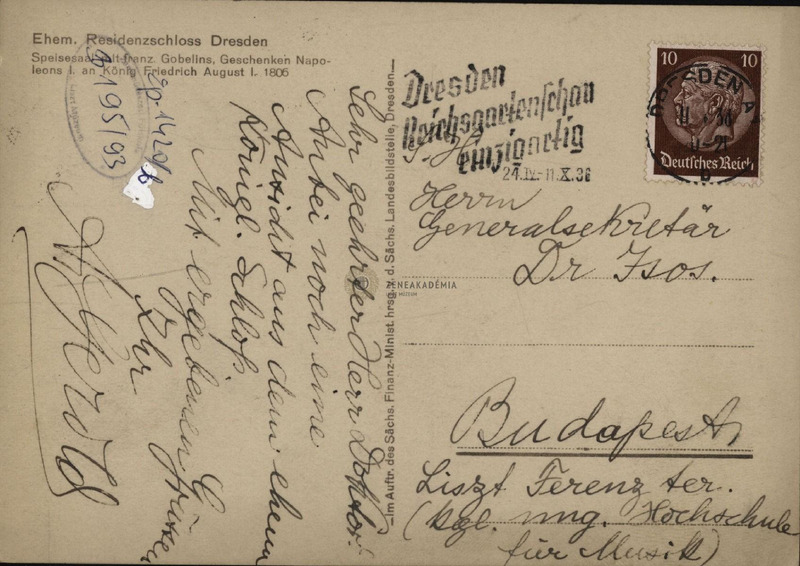 Ehem. Residenzschloss Dresden
Speisesaal mit franz. Gobelins, Geschenken Napo-
leons I. an König Friedrich August I. 1806
195/93
Sehr geehrter Herr Doktor!
Anbei noch eine
Ansicht aus dem ehem
Königl. Schloß
Mit ergebenen Grüßen
Ihr
—Im Auftr. des Sächs. Finanz-Minist. hrsg. v. d. Sächs. Landesbildstelle, Dresden.—
Dresden
Reichsgartenschau
einzigartig
24.IV.-11.X.36
10 10
DRESDEN A
Deutsches Reich
Herrn
Generalsekretär
Dr Isos.
ZENEAKADÉMIA
Budapest,
Liszt Ferenz ter.
(kgl. ung. Hochschule
für Musik)